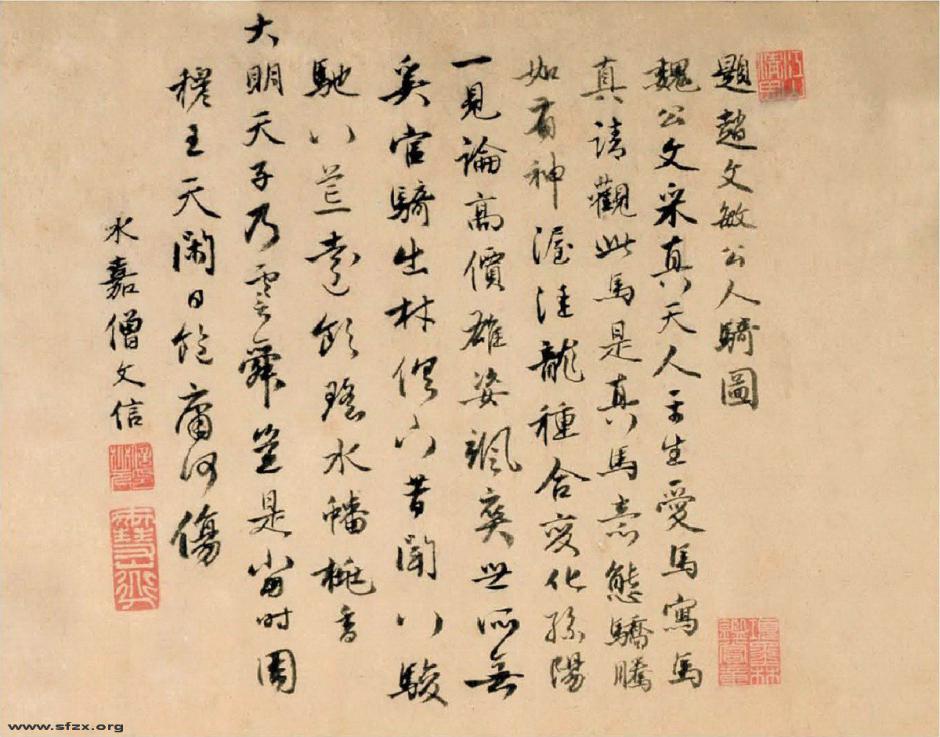 題趙文敏公人騎圖
魏公文采真天人平生愛馬寫馬
真請觀此馬是真馬意態驕騰
如有神渥洼龍種合變化孫陽
一見論高價雄姿颯爽世所無
奚官騎出林下昔聞八駿
馳八荒遠飲瑤水蟠桃香
大明天子乃舜豈是當时周
穆王天閑日飽庸何傷
永嘉僧文信
www.sfzx.org